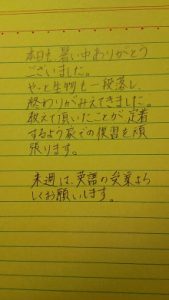 本日も暑い中ありがとう
ございました。
やっと生物も一段落し、
終わりがみえてきました。
教えて頂いたことが定着
するよう家での復習を頑
張ります。
来週は、英語の授業よろ
しくお願いします。